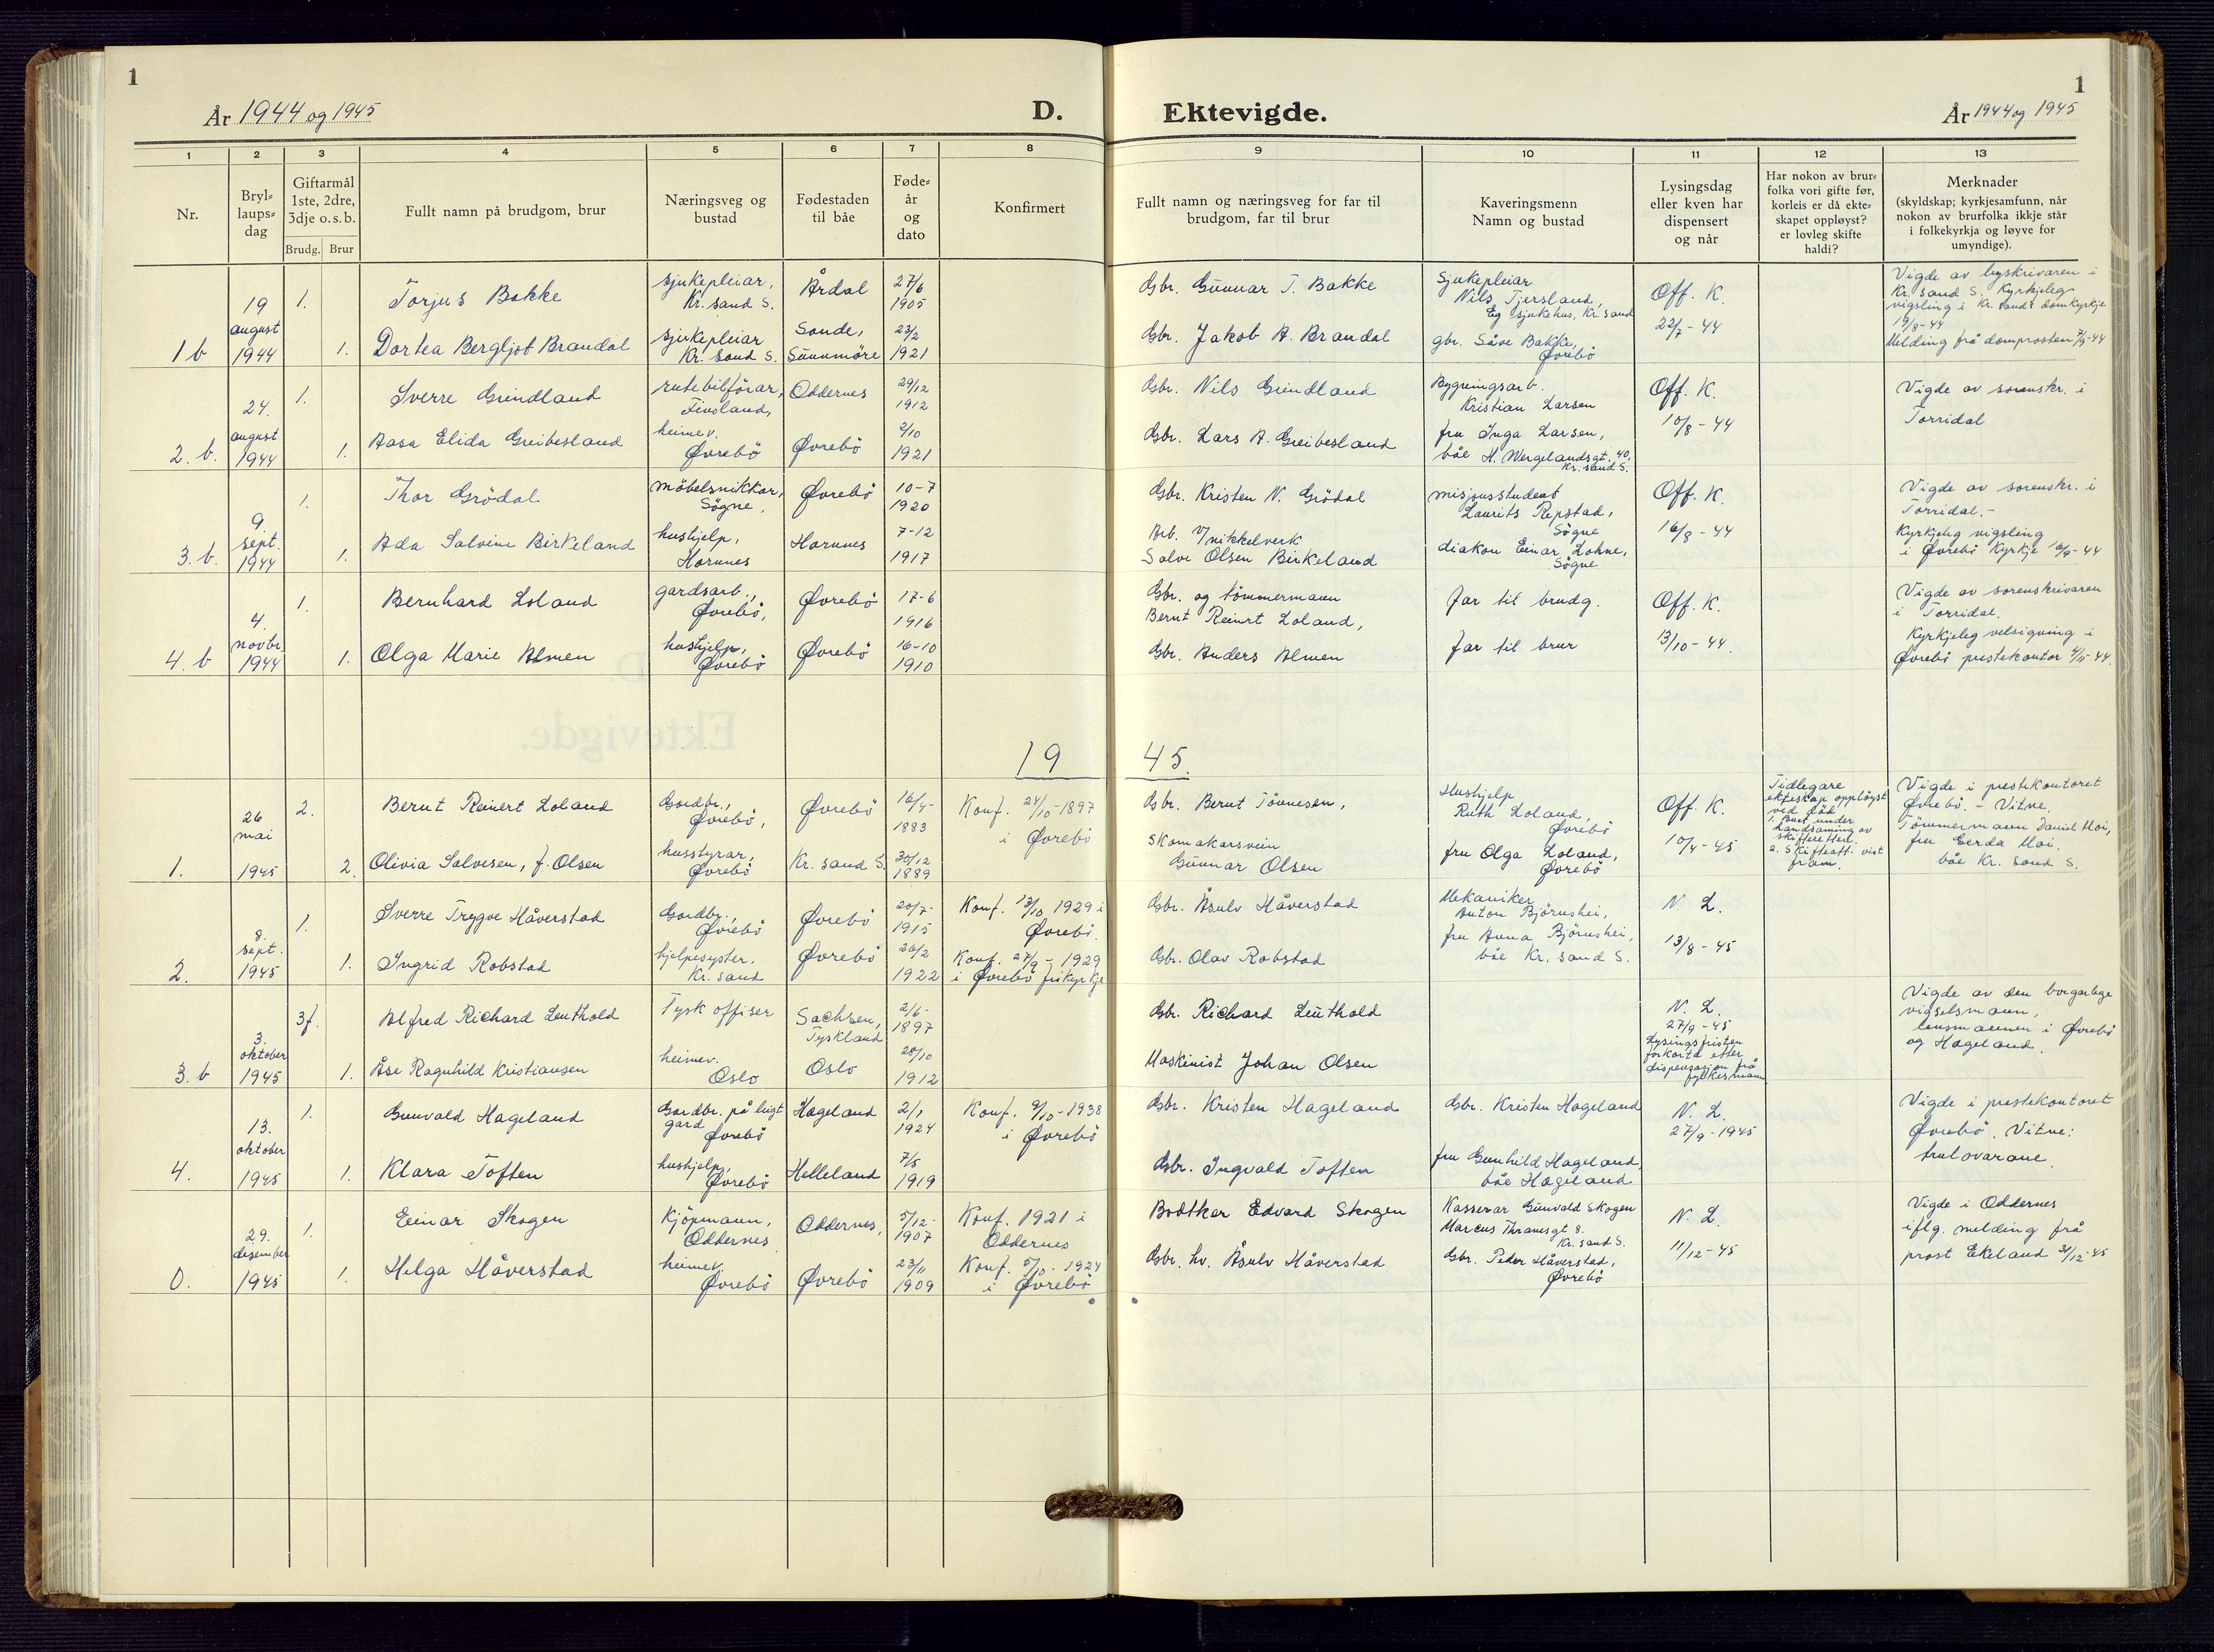 1
År 1944 og 1945
D.
Ektevigde.
1
År 1944 og 1945
1 2 3 4 5 6 7 8 9 10 11 12 13
Nr.
Bryl-
laups-
dag
Giftarmål
1ste, 2dre,
3dje o.s.b.
Brudg. Brur
Fullt namn på brudgom, brur
Næringsveg og
bustad
Fødestaden
til båe
Føde-
år
og
dato
Konfirmert
Fullt namn og næringsveg for far til
brudgom, far til brur
Kaveringsmenn
Namn og bustad
Lysingsdag
eller kven har
dispensert
og når
Har nokon av brur-
folka vori gifte før,
korleis er då ekte-
skapet oppløyst?
er lovleg skifte
haldi?
Merknader
(skyldskap; kyrkjesamfunn, når
nokon av brurfolka ikkje står
i folkekyrkja og løyve for
umyndige).
1 b
19
august
1944
1.
Torjus Bakke
sjukepleiar,
Kr. sand S.
Årdal
27/6
1905
Gbr. Gunnar T. Bakke
Sjukepleiar
Nils Tjersland,
Eg sjukehus, Kr. sand
Off. K.
22/7 - 44
Vigde av byskrivaren i
Kr. sand S. Kyrkjeleg
vigsling i Kr. sands domkyrkje
19/8-44
Melding frå domprosten 7/9-44
1.
Dortea Bergljot Brandal
sjukepleiar
Kr. sand S.
Sande,
Sunnmöre
23/2
1921
Gbr. Jakob A. Brandal
gbr. Såve Bakke,
Øvrebö
2. b.
24.
august
1944
1.
Sverre Grindland
rutebilförar,
Finsland,
Oddernes
29/12
1912
Gbr. Nils Grindland
Bygningsarb.
Kristian Larsen
Off. K.
10/8 - 44
Vigde av sorenskr. i
Torridal
1.
Aasa Elida Greibesland
heimev.
Øvrebö
Øvrebö
2/10
1921
Gbr. Lars A. Greibesland
fru Inga Larsen,
båe H. Wergelandsgt. 40,
Kr. sand S.
3. b.
9.
sept.
1944
1.
Thor Grödal
möbelsnikkar,
Søgne,
Øvrebö
10-7
1920
Gbr. Kristen N. Grödal
misjonsstudent
Laurits Repstad,
Søgne
Off. K.
16/8 - 44
Vigde av sorenskr. i
Torridal.-
Kyrkjeleg vigsling
i Øvrebö Kyrkje 16/9-44
1.
Ada Salvine Birkeland
hushjelp,
Hornnes
Hornnes
7-12
1917
Arb. v/nikkelverk
Salve Olsen Birkeland
diakon Einar Lohne,
Søgne
4. b
4.
novbr.
1944
1.
Bernhard Loland
gardsarb.,
Øvrebö,
Øvrebö
17-6
1916
Gbr. og tömmermann
Bernt Reinert Loland,
Far til brudg.
Off. K.
13/10 - 44.
Vigde av sorenskrivaren
i Torridal.
Kyrkjeleg velsigning i
Øvrebö prestekontor 4/11-44.
1.
Olga Marie Almen
hushjelp,
Øvrebö
Øvrebö
16-10
1910
Gbr. Anders Almen
Far til brur
19 45.
1.
26
mai
1945
2.
Bernt Reinert Loland
Gardbr.,
Øvrebö,
Øvrebö
16/4-
1883
Konf. 24/10-1897
i Øvrebö
Gbr. Bernt Tönnesen,
Hushjelp
Ruth Loland,
Øvrebö
Off. K.
10/4 - 45
Tidlegare
ekteskap opplöyst
ved död
1. Buet under
handsaming av
skifteretten.
2. Skifteatt. vist
fram.
Vigde i prestekontoret
Øvrebö. - Vitne.
Tömmermann Daniel Moi,
fru Gerda Moi,
båe Kr. sand S.
2.
Olivia Salvesen, f. Olsen
husstyrar,
Øvrebö
Kr. sand S.
30/12
1889
Skomakarsvein
Gunnar Olsen
fru Olga Loland,
Øvrebö
2.
8.
sept.
1945
1.
Sverre Trygve Håverstad
Gardbr.,
Øvrebö
Øvrebö
20/7-
1915
Konf. 13/10 1929 i
Øvrebö.
Gbr. Åsulv Håverstad
Mekaniker
Anton Björnshei,
N. L.
13/8 - 45
1.
Ingrid Robstad
hjelpesyster,
Kr. sand
Øvrebö
26/2
1922
Konf. 27/9 - 1929
i Øvrebö frikyrkje
Gbr. Olav Robstad
fru Anna Björnshei,
båe Kr. sand S.
3. b
3.
oktober
1945
3f.
Alfred Richard Leuthold
Tysk offiser
Sachsen,
Tyskland
2/6-
1897
Gbr. Richard Leuthold
N. L.
27/9 - 45
Lysingsfristen
forkorta etter
dispensasjon frå
fylkesmann
Vigde av den borgarlege
vigselsmann,
lensmannen i Øvrebö
og Hægeland.
1.
Åse Ragnhild Kristiansen
heimev.
Oslo
Oslo
28/10
1912
Maskinist Johan Olsen
4.
13.
oktober
1945
1.
Gunvald Hageland
Gardbr. på leigt
gard
Øvrebö
Hægeland
2/1
1924
Konf. 9/10-1938
i Øvrebö
Gbr. Kristen Hageland
Gbr. Kristen Hageland
N. L.
27/9-1945
Vigde i prestekontoret
Øvrebö. Vitne:
trulovarane.
1.
Klara Toften
hushjelp,
Øvrebö
Helleland
7/5
1919
Gbr. Ingvald Toften
fru Gunhild Hageland,
båe Hægeland
0.
29.
desember
1945
1.
Einar Skogen
Kjöpmann,
Oddernes
Oddernes,
5/12-
1907
Konf. 1921 i
Oddernes
Bödtker Edvard Skogen
Kasserar Gunvald Skogen
Marcus Thranesgt 8.
Kr. sand S.
N. L.
11/12-45
Vigde i Oddernes
iflg. melding frå
prost Ekeland 31/12-45
1.
Helga Håverstad
heimev.
Øvrebö
Øvrebö
23/11
1909
Konf. 5/10-1924
i Øvrebö
Gbr. hv. Åsulv Håverstad
Gbr. Peder Håverstad,
Øvrebö